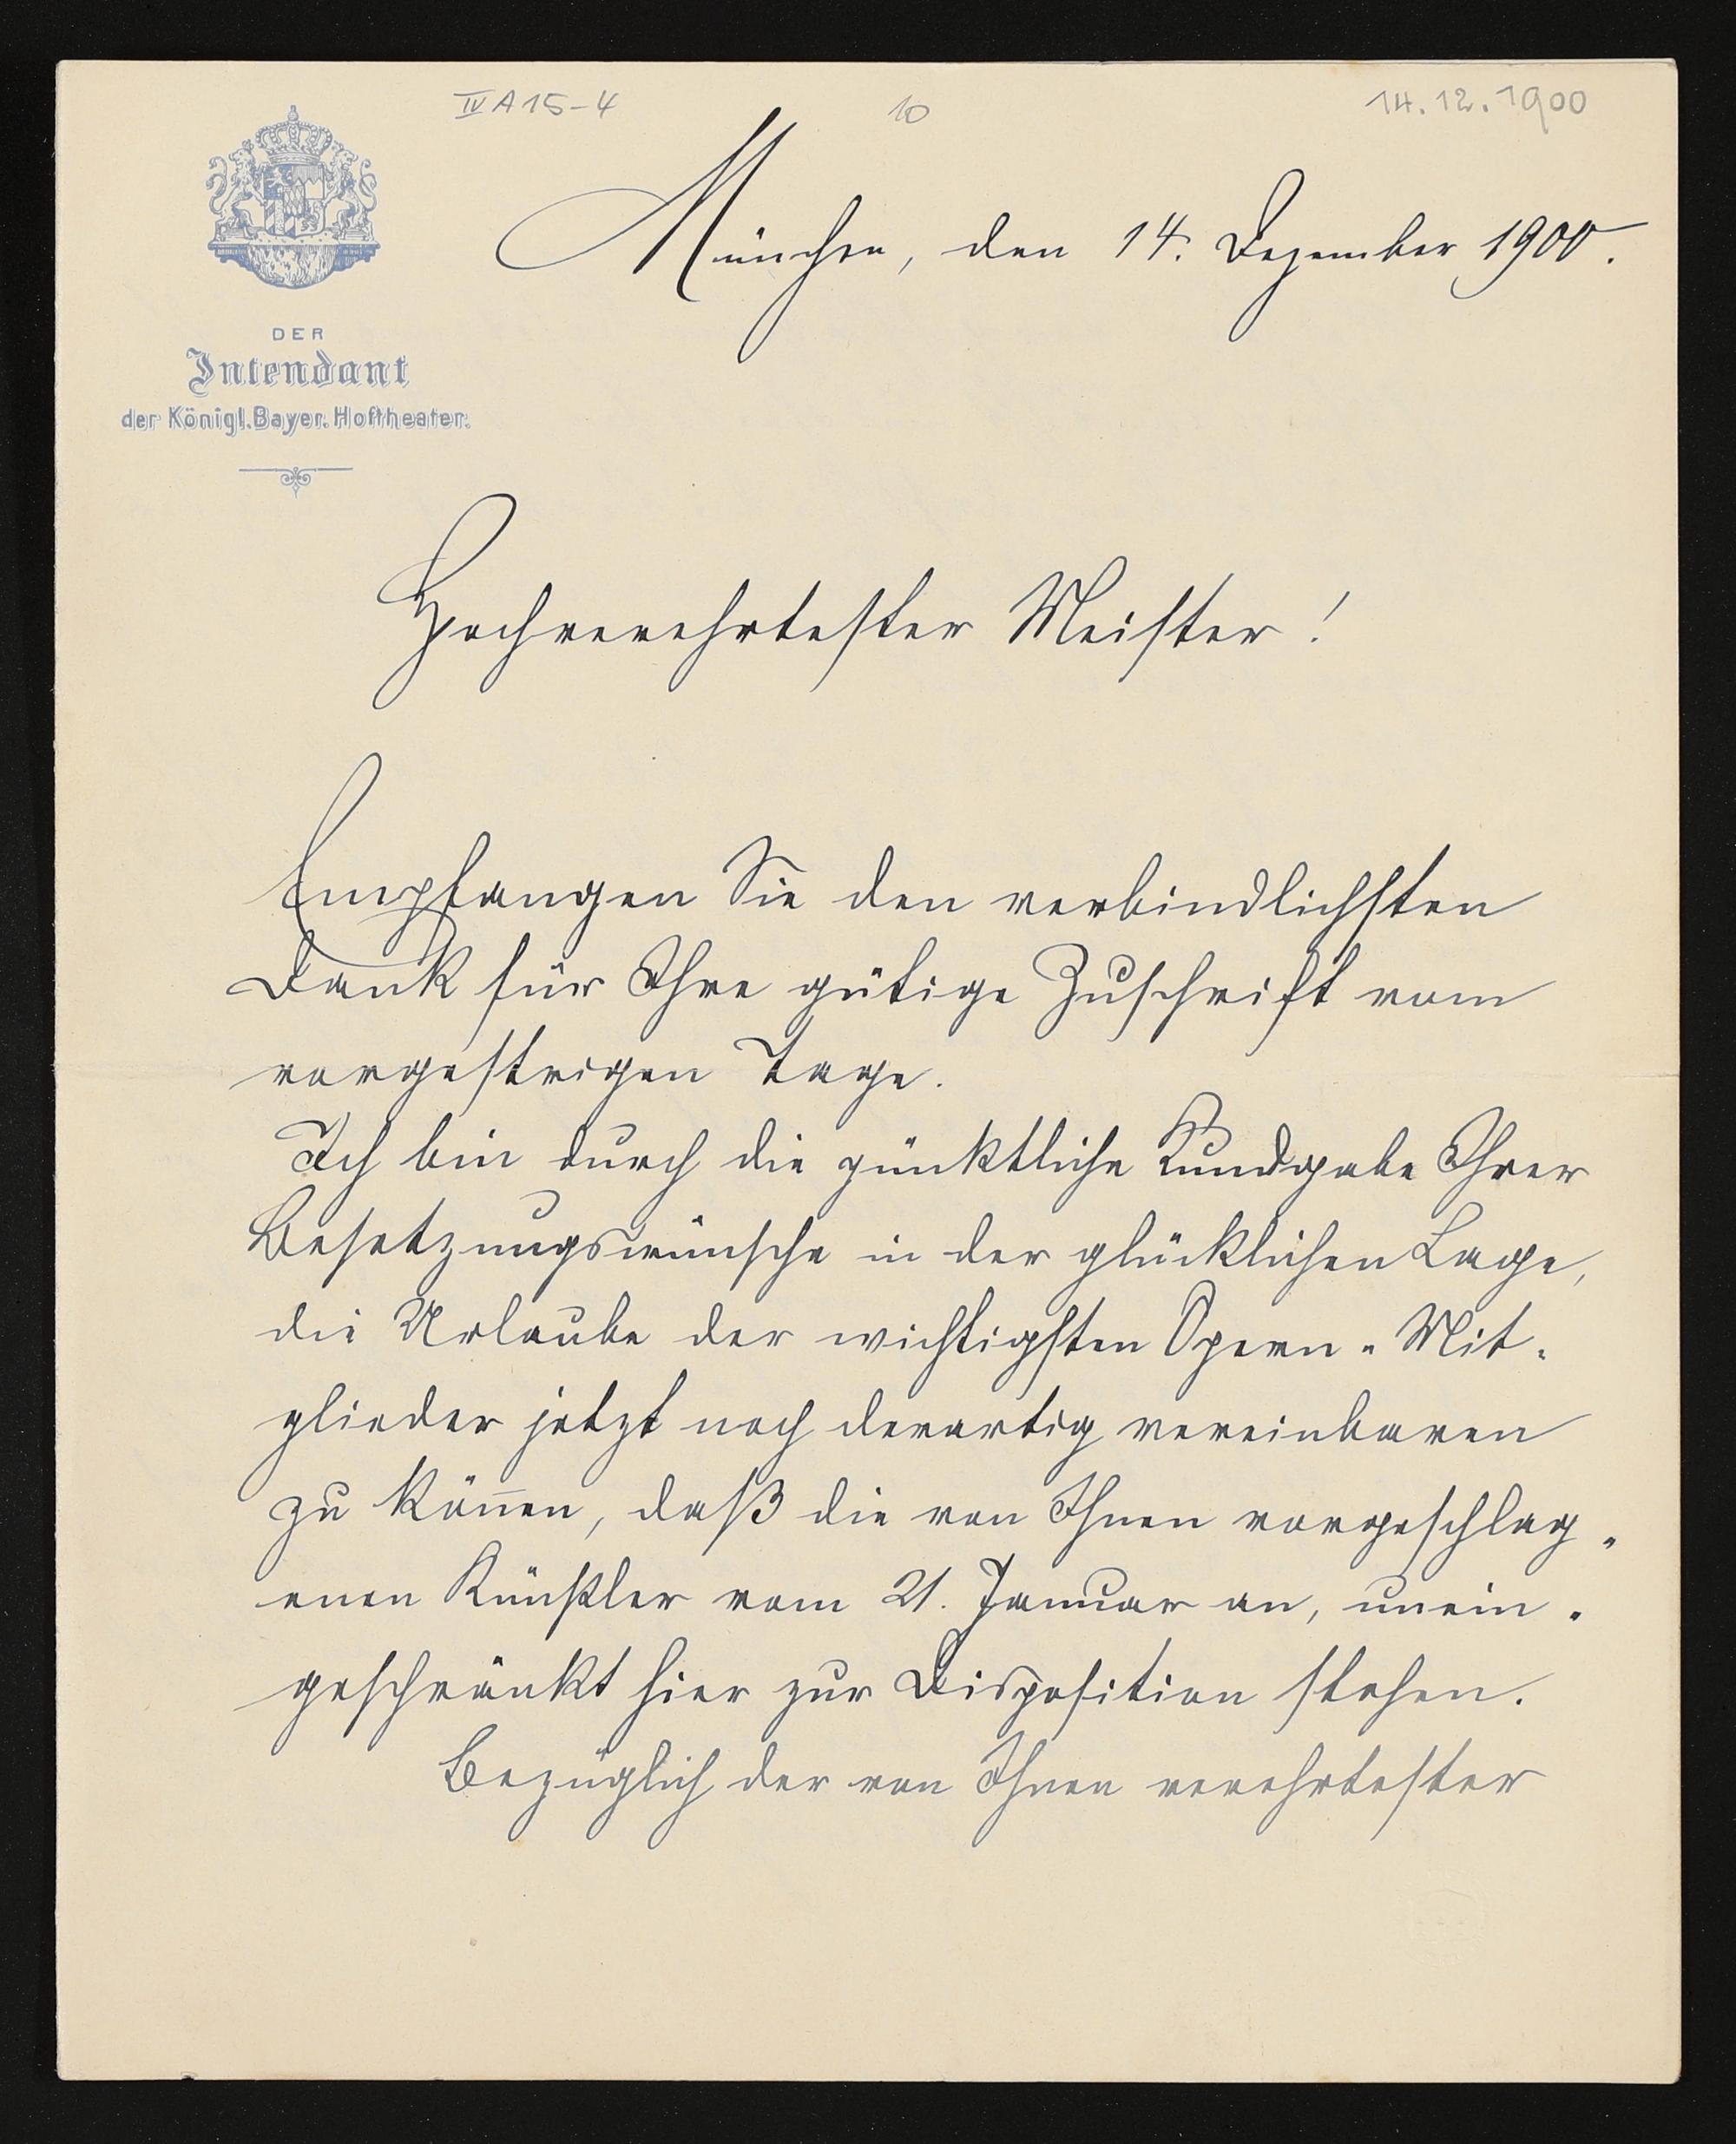 IV A 15-4
10
14.12.1900
München, den 14. Dezember 1900.
DER
Intendant
der Königl. Bayer. Hoftheater.
Hochverehrtester Meister!
Empfangen Sie den verbindlichsten
Dank für Ihre gütige Zuschrift vom
vorgestrigen Tage.
Ich bin durch die pünktliche Kundgabe Ihrer
Besetzungswünsche in der glücklichen Lage,
die Urlaube der wichtigsten Opern-Mit-
glieder jetzt noch derartig vereinbaren
zu köñen, daß die von Ihnen vorgeschlag-
enen Künstler vom 21. Januar an, unein-
geschränkt hier zur Disposition stehen.
Bezüglich der von Ihnen verehrtester